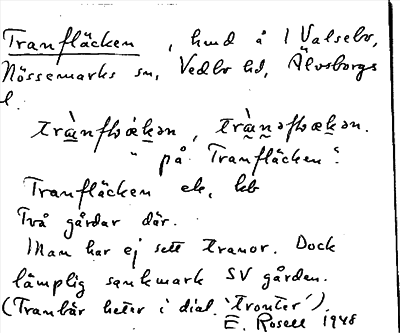 Tranfläcken, hmd å 1 Valsebo,
Nössemarks sn, Vedbo hd, Älvsborgs
l.
trànflæ̀kən, trànəflækən.
"på Tranfläcken".
Tranfläcken ek. kb
Två gårdar där.
Man har ej sett tranor. Dock
lämplig sankmark SV gården.
(Tranbär heter i dial. 'tronter').
E. Rosell 1948